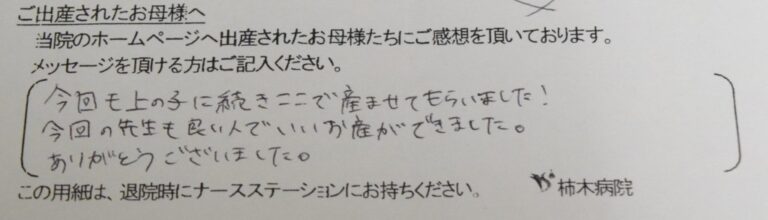 ご出産されたお母様へ
当院のホームページへ出産されたお母様たちにご感想を頂いております。
メッセージを頂ける方はご記入ください。
今回も上の子に続きここで産ませてもらいました!
今回の先生も良い人でいいお産ができました。
ありがとうございました。
この用紙は、退院時にナースステーションにお持ちください。 柿木病院